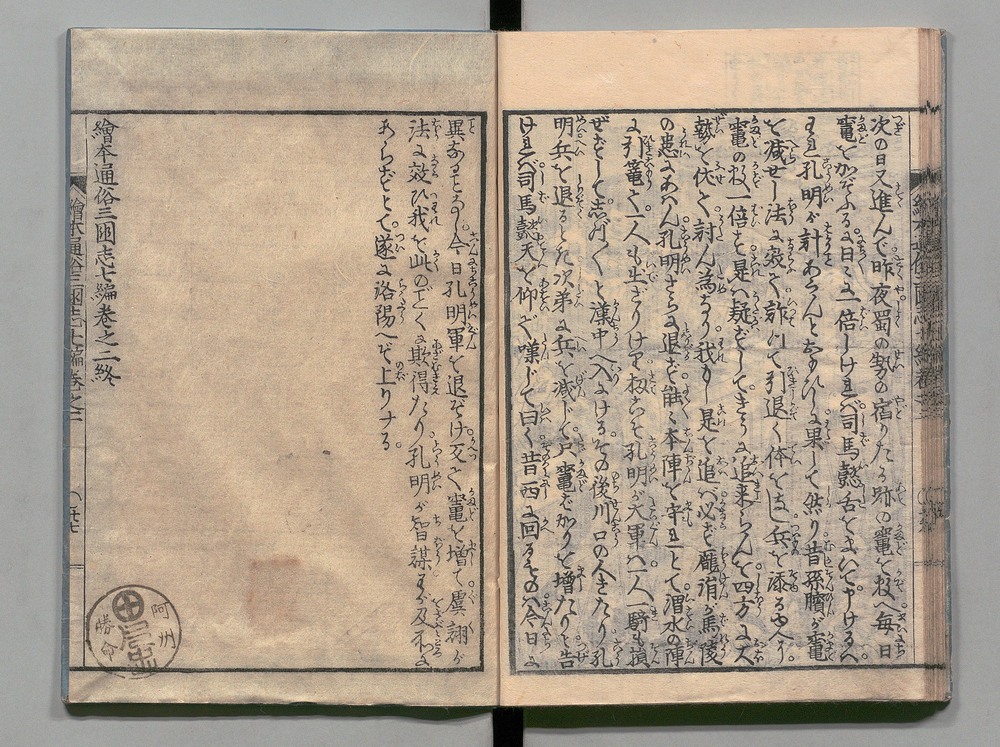 次の日又進んで昨夜蜀の勢の宿りたる跡の竈を校へ毎日
竈をかぞふるに日々に一倍しければ司馬懿舌をまいて申けるハ
われ孔明が計あらんとおもひしに果して然り昔孫臏が竈
を减せし法に效て詐りて引退く体をなし兵を添るゆへ
竈の校一倍と是ハ疑なしきさらに追来らんを四方に大
勢を伏て討ん為なり我もし是を追ハ必ず龐涓が馬陵
の患にあハん孔明さらに退ず能々本陣を守れとて渭水の陣
に引篭て一人も出ざりけり扨こそ孔明が大軍ハ一人一騎も損
ぜずして志づ〱と漢中へ入にけるその後川口の人きたり孔
明兵を退るとき次第に兵を减じて只竈をかりを增たりと告
ければ司馬懿天を仰で嘆じて曰く昔西に回るものハ今日に
異なることなし今日孔明軍を退ぞけ反て竈を增て虞詡が
法に效ひ我を此のごとく欺得たり孔明が智謀わが及ぶ不に
あらずとて遂に洛陽へぞ上りける。
繪本通俗三國志七編巻之二終
繪本通俗三國志七編巻之二
阿州
勝命